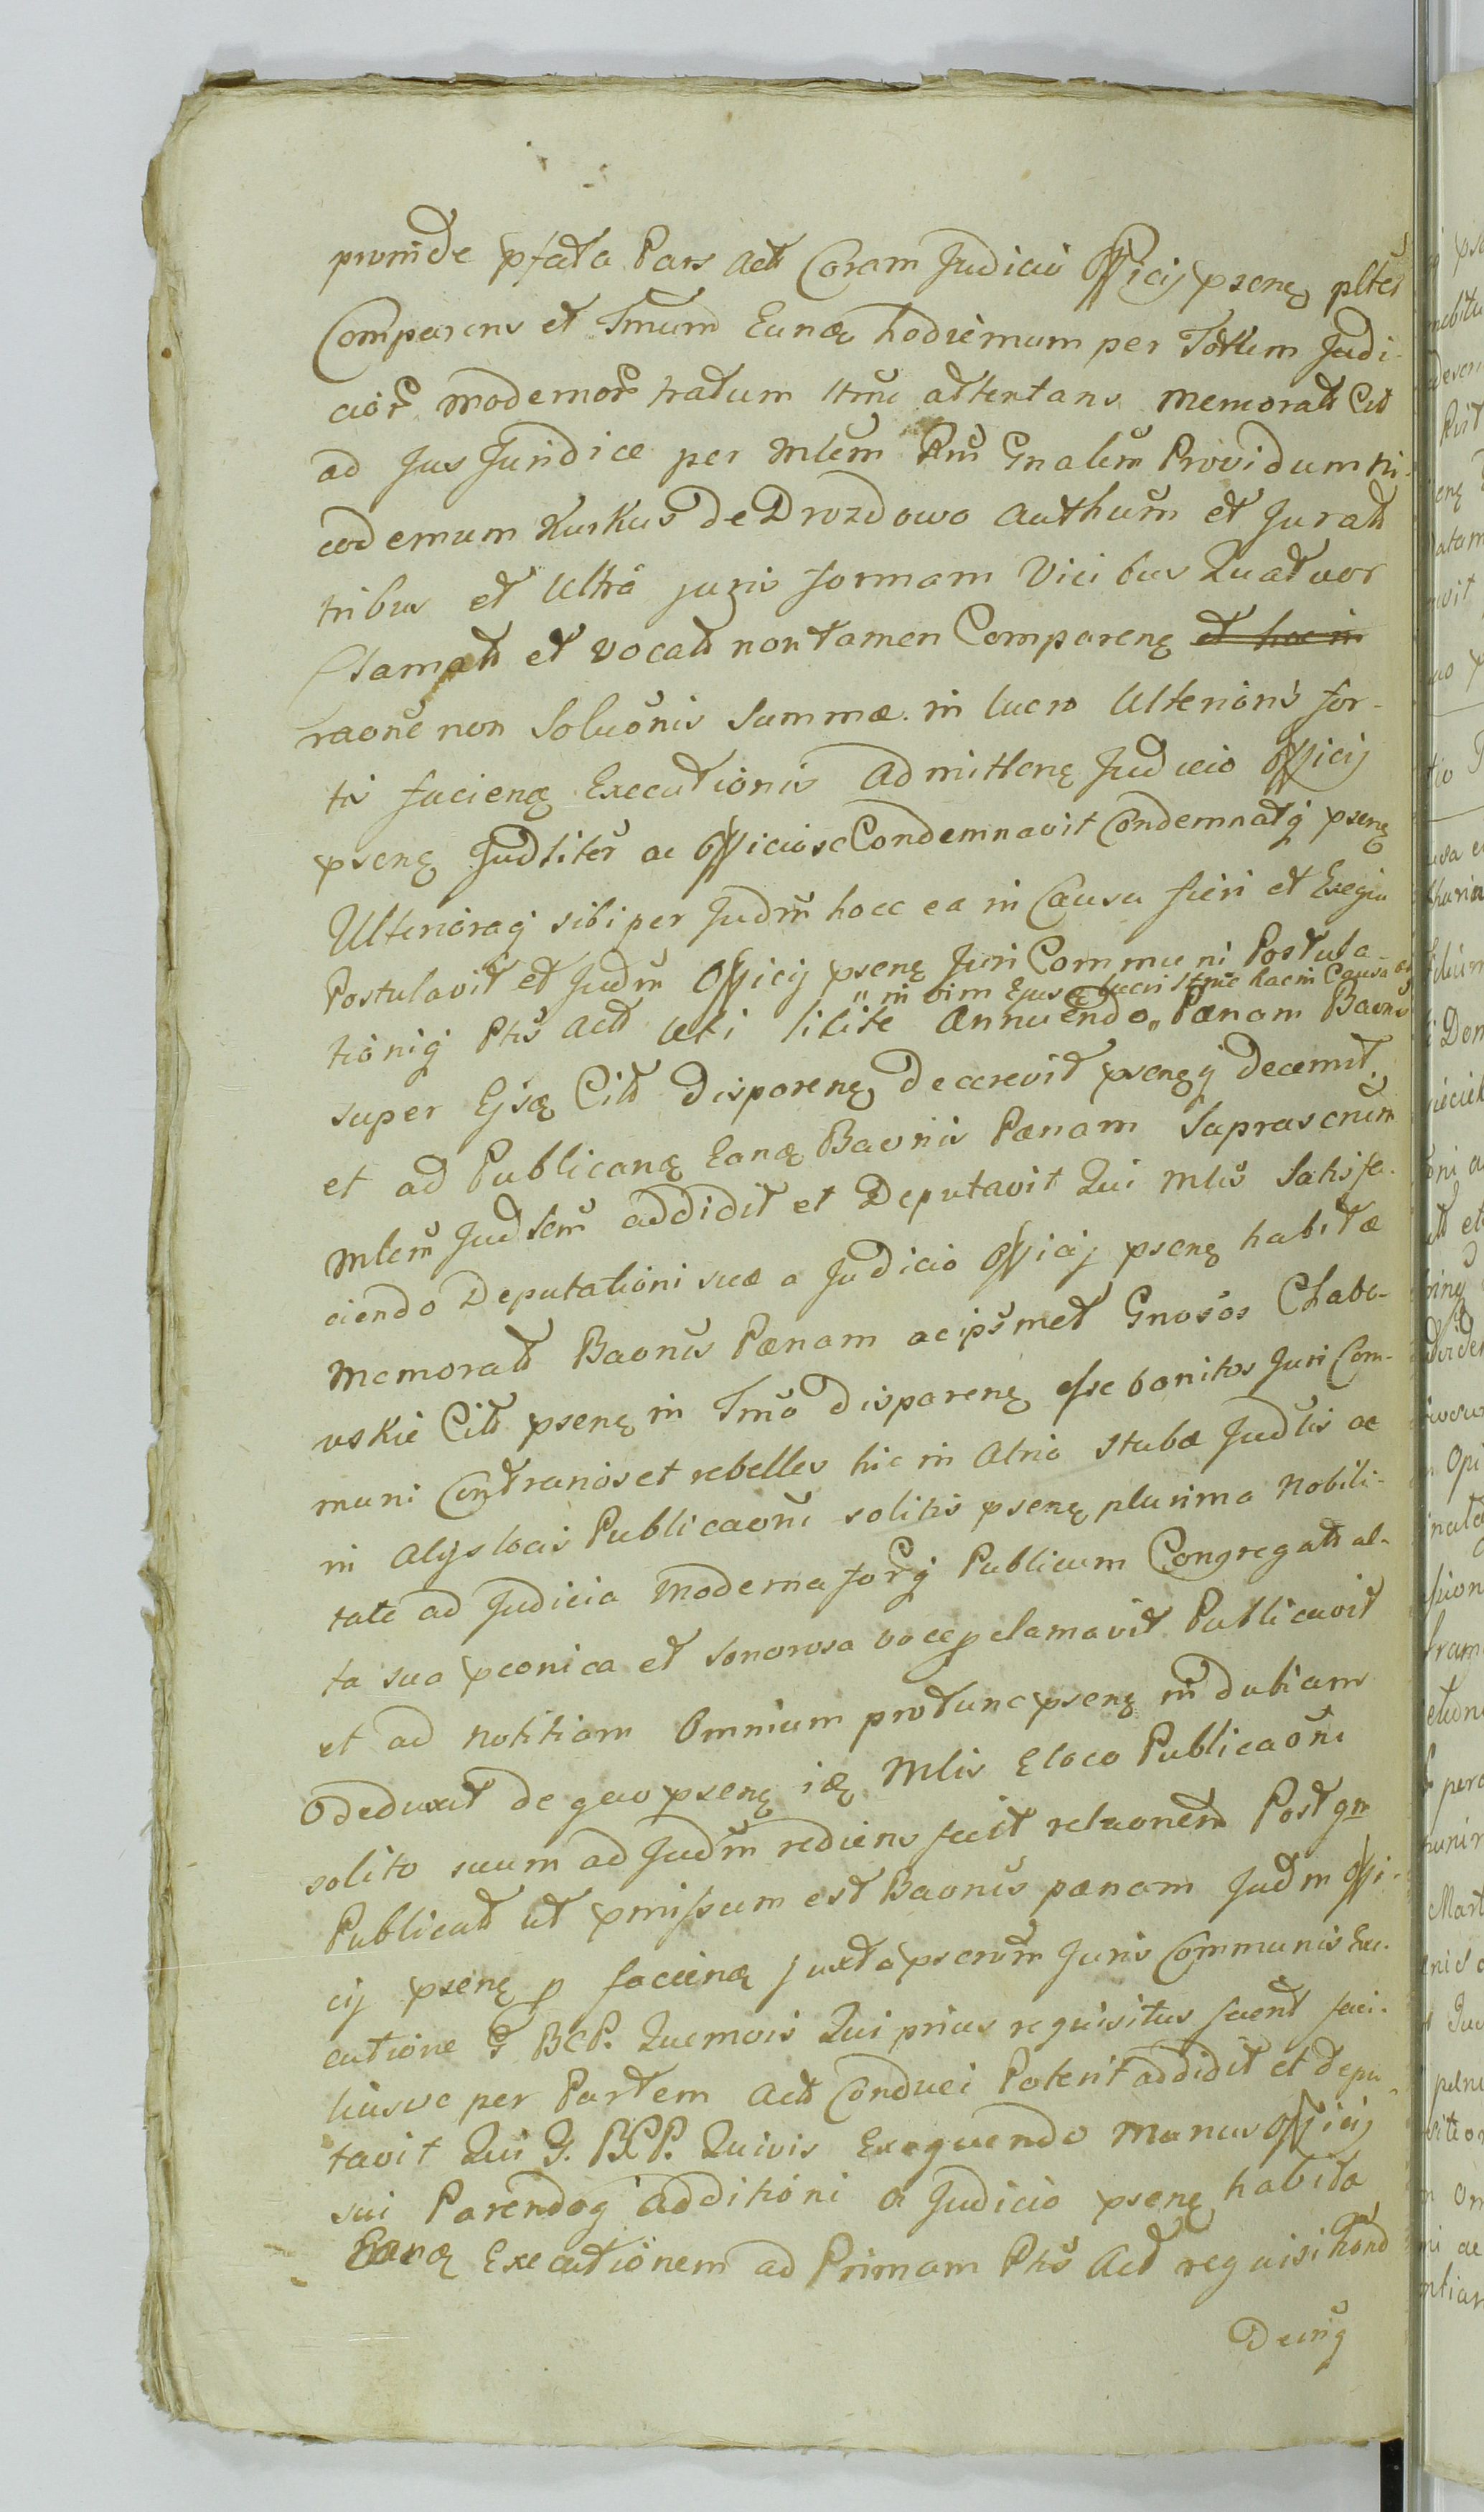 proinde pfata Pars Act Coram Judicio Officij psenę plter
Comparens et Tmum Eunę hodiernum per Totum Judi-
cior modernor tratum Itme attentans Memorat Citt
ad Jus Juridice per Mlem Rni Gnalem Providum ni-
codemum Kurkus de Drozdowo authum et Jurat
tribus et Ultra juris formam Vicibus Quatuor
Clamat et vocat non tamen Comparenę et hac in
raone non Soluonis Summæ in lucro Ulterioris for-
tis facienę Executionis admittenę Judicio Officij
psenę Judliter ac Officiose Condemnavit Condemnatq psenę
Ulterioraq sibi per Judm hocce ea in Causa fieri et Exequi
Postulavit et Judm Officij psenę Juri Communi Postula-
" in vim Ejusę lucri Itme hac in Causa
tioniq Ptis Act uti licite Annuendo " Pænam Baonis
super Ejsę Citt Disparenę Decrevit psenęq Decernit
et ad Publicanę Eanę Baonis Pænam Suprascrem
Mlem Judlem addidit et Deputavit Qui Mlis Satisfa-
ciendo Deputationi suæ a Judicio Officij psenę habitæ
Memorat Baonis Pænam ac ipsmet Gnosos Chabo-
wskie Citt psenę in Tmo disparenę esse banitos Juri Com-
muni Contrarios et rebelles hic in Atrio Stubæ Judlis ac
in Alijs locis Publicaoni solitis psenę plurima nobili-
tate ad Judicia moderna forq Publicum Congregat al-
ta sua pconica et sonorosa voce pclamavit Publicavit
et ad notitiam Omnium protunc psenę in dubiam
Deduxit de quo psenę ię Mlis E loco Publicaoni
solito suum ad Judm rediens fecit relaonem Post qm
Publicat ut pmissum est Baonis pænam Judm Offi-
cij psenę p facienę juxta pscrum Juris Communis Exe-
cutione G BCP. Quemvis Qui prius requisitus fuerit faci-
liusve per Partem Act Conduci Poterit addidit et depu-
tavit Qui G. BCP. Quivis Exequendo Munus Officij
sui Parendoq additioni a Judicio psenę habita
Eanę Executionem ad Primam Ptis Act requisitiond
Deinq